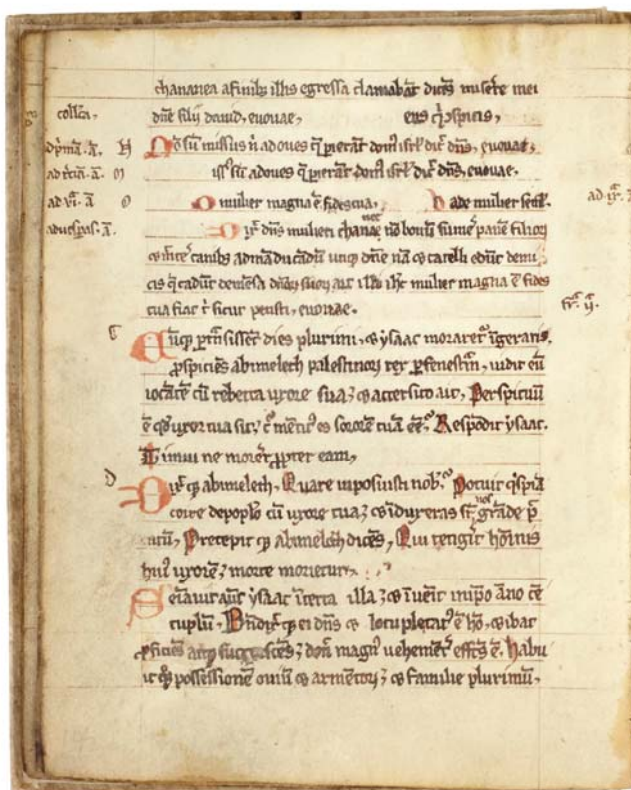 chananea a finibꝫ illis egressa clamabāt dicēs miserē mei
collca. dn̄e filii dauid, euouae, eus
ad p̃mā. ā. H Nō sū missus ñ ad oues q̃ pierāt domꝰ isrl' dic̄ dn̄s, euouae,
ad tciā. ā. sū ad oues q̃ pierāt domꝰ isrl' dic̄ dn̄s, euouae.
ad vi. ā O O mulier magna ē fides tua, ade mulier ad ix.
ad uesꝑas. ā. dn̄s mulieri chananee nō bonū sume panē filioꝝ
⁊ canibꝫ ad māducādū dn̄e nā ⁊ catelli edūt de mi
cis q̃ cadūt de mēsa dn̄oꝝ suoꝝ ait illi ih̄c mulier magna ē fides
tua fiat t̄ sicut petisti, euouae. fr̄. ii.
c Cūq̨ ꝑtrāsissēt dies plurimi, ⁊ ysaac moraret᷒ ī geraris,
ꝓspiciēs abimelech palestinoꝝ rex ꝑ fenestrā, uidit eū
iocātē cū rebecca uxore sua; ⁊ accersito ait, Perspicuū
ē qd̓ uxor tua sit, mētitꝰ es sororē tuā ēē, Respōdit ysaac,
Timui ne morer̄ ꝓpter eam,
D Dixitq̨ abimelech, Quare inposuisti nob̄, Potuit q̓spiā
coire de poplo cū uxore tua; ⁊ īduxeras sr̄ nos grāde pc̄
catū, Precepitq̨ abimelech dicēs, Qui tetigit hōinis
huiꝰ uxorē; morte morietur,
Seuit aut̄ ysaac ī terra illa; ⁊ īuēit in ip̄o āno cē
tuplū, Bn̄dix̄ q̨ ei dn̄s ⁊ locupletatꝰ ē hō, ⁊ ibat
ꝓficiēs atq̨ succrescēs; donc̄ magnꝰ uehemēt̄ effēs ē, Habu
it q̨ possessionē ouiū ⁊ armētoꝝ; ⁊ familie plurimū,